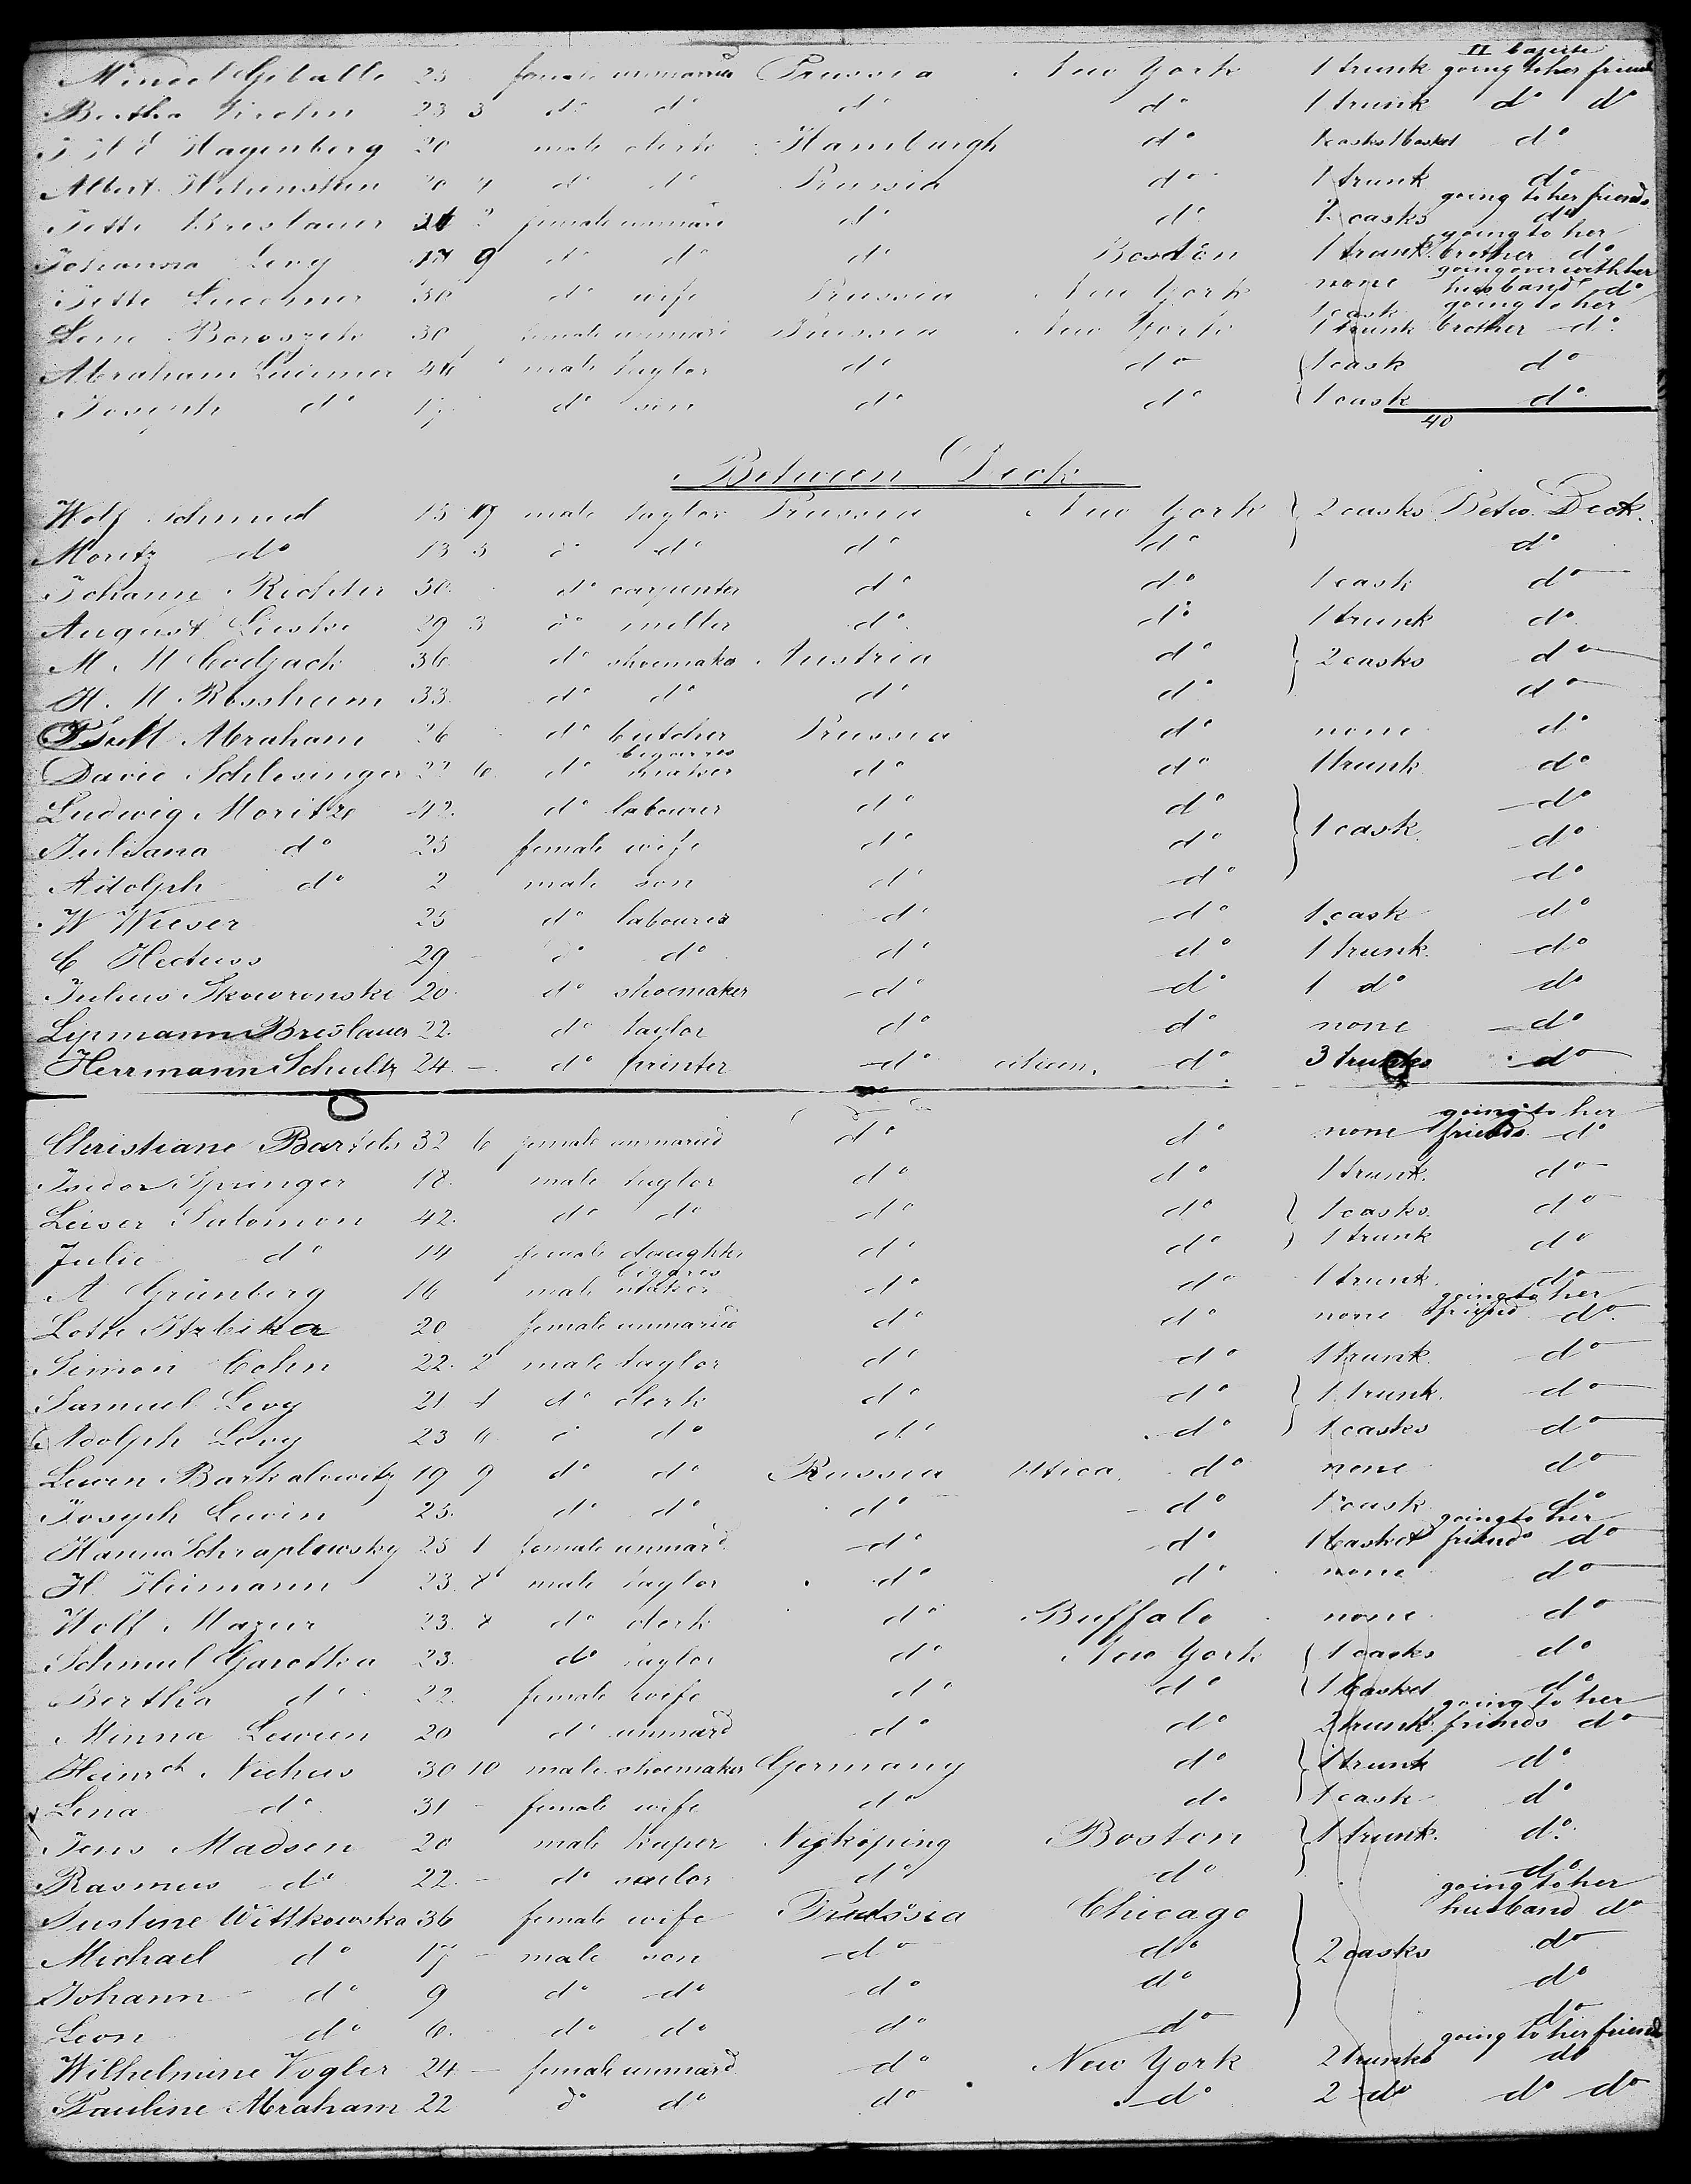 II Cajüte
Geballe 23 female unmarried Prussia New York 1 trunk going to her friends
Bertha 23 3 do do do do 1 trunk do do
Hagenberg 20 male clerk Hamburgh do 1 cask 1 basket do
Albert do do Prussia do 1 trunk do
going to her friends
Jette Breslauer female unmard do do 2 casks do
going to her
Johanna Levy 17 9 do do do Boston 1 trunk brother do
going over with her
Jette 30 do wife Prussia New York none husband do
1 cask going to her
Lene 30 female unmard Prussia New York 1 trunk brother do
Abraham 46 male taylor do do 1 cask do
Joseph do 17 do son do do 1 cask do
40
Between Deck
Wolf Schmul 15 male taylor Prussia New York 2 casks Betw. Deck
Moritz do 13 3 do do do do do
Johann Richter 30 do carpenter do do 1 cask do
August 29 3 do miller do do 1 trunk do
M. M 36 do shoemaker Austria do 2 casks do
H. M. Rossheim 33 do do do do do
Abraham 26 do butcher Prussia do none do
cigarres
David Schlesinger 22 6 do maker do do 1 trunk do
Ludwig Moritze 42 do labourer do do do
Juliana do 23 female wife do do 1 cask do
Adolph do 2 male son do do do
W Wieser 25 do labourer do do 1 cask do
C 29 do do do do 1 trunk do
Julius Skowronski 20 do shoemaker do do 1 do do
Lipmann Breslauer 22 do taylor do do none do
Herrmann Schultz 24 do printer do citizen do 3 trunks do
going to her
Christiane Bartels 32 6 female unmaried do do none friends do
Isidor Springer 18 male taylor do do 1 trunk do
Leiser Salomon 42 do do do do 1 casks do
Julie do 14 female daughter do do 1 trunk do
cigares
A Grünberg 16 male maker do do 1 trunk do
going to her
Lotte 20 female unmaried do do none friend do
Simon Cohn 22 2 male taylor do do 1 trunk do
Samuel Levy 21 4 do clerk do do 1 trunk do
Adolph Levy 23 6 do do do do 1 casks do
Lewin Barkalowitz 19 9 do do Russia Utica do none do
Joseph Lewin 25 do do do do 1 cask do
going to her
Hanna Schraplowsky 25 1 female unmard do do 1 basket friends do
H. Heimann 23 8 male taylor do do none do
Wolf Mazur 23 8 do clerk do Buffalo none do
Schmul Garotka 23 do taylor do New York 1 casks do
Bertha do 22 female wife do do 1 basket do
going to her
Minna Lewien 20 do unmard do do 2 trunks friends do
Heinrch Niehus 30 10 male shoemaker Germany do 1 trunk do
Lena do 31 female wife do do 1 cask do
Jens Madsen 20 male Nyköping Boston 1 trunk do
Rasmus do 22 do sailor do do do
going to her
Justine Wittkowska 36 female wife Prussia Chicago husband do
Michael do 17 male son do do 2 casks do
Johann do 9 do do do do do
Leon do 6 do do do do do
going to her friends
Wilhelmine Vogler 24 female unmard do New York 2 trunks do
Pauline Abraham 22 do do do do 2 do do do